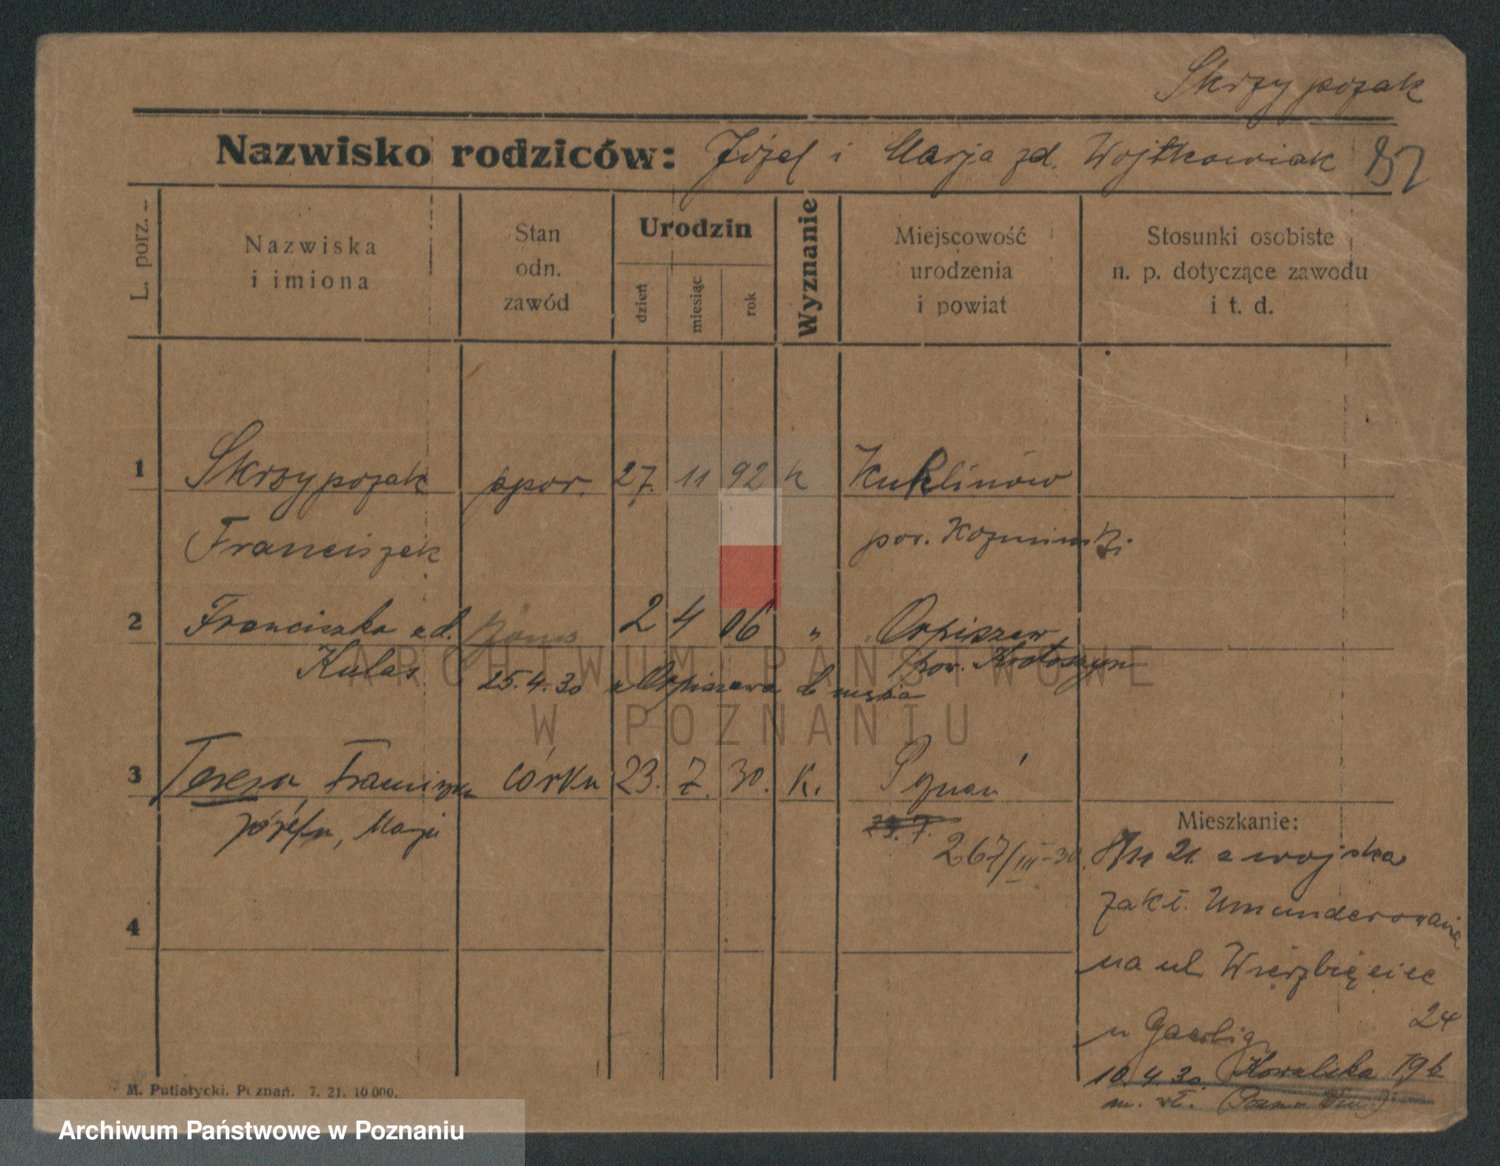 Skrzypczak
Nazwisko rodziców: Józef i Marja zd. Wojtkowiak 82
L. porz.
Nazwiska
i imiona
Stan
odn.
zawód
Urodzin
dzień
miesiąc
rok
Wyznanie
Miejscowość
urodzenia
i powiat
Stosunki osobiste
n. p. dotyczące zawodu
i t. d.
1 Skrzypczak ppor. 27. 11 92 k Kuklinów
Franciszek pow. Kozmiński
2 Franciszka zd. żona 2 4 06 " Orpiszew
Kulas pow. Krotoszyn
25.4.30 z Orpiszewa do męża
3 Teresa Franciszka córka 23. 7. 30. K. Poznań
Józefa, Marja 23.7.
267/III-30.
Mieszkanie:
21. z wojska
zakł. Umundurowania
na ul. Wierzbięcice
24
u
10.4.30. Kowalska 19b
m. wł.
4
M. Putiatycki. Poznań. 7. 21. 10 000.
ARCHIWUM PAŃSTWOWE
W POZNANIU
Archiwum Państwowe w Poznaniu